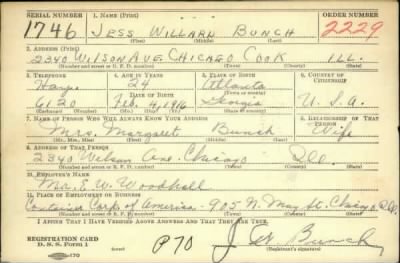 SERIAL NUMBER 1. NAME (Print) ORDER NUMBER
1746 JESS WILLARD BUNCH 2229
(First) (Middle) (Last)
2. ADDRESS (Print)
2340 WILSON AVE CHICAGO COOK ILL.
(Number and street or R. F. D. number) (Town) (County) (State)
3. TELEPHONE 4. AGE IN YEARS 5. PLACE OF BIRTH 6. COUNTRY OF CITIZENSHIP
24 Atlanta
6120 Feb. 4, 1916 Georgia U. S. A.
(Exchange) (Number) (Mo.) (Day) (Yr.) (State or country)
7. NAME OF PERSON WHO WILL ALWAYS KNOW YOUR ADDRESS 8. RELATIONSHIP OF THAT PERSON
Mrs. Margaret Bunch Wife
(Mr., Mrs., Miss) (First) (Middle) (Last)
9. ADDRESS OF THAT PERSON
2340 Wilson Ave. Chicago Ill.
(Number and street or R. F. D. number) (Town) (County) (State)
10. EMPLOYER'S NAME
Mr. E. W. Woodhall
11. PLACE OF EMPLOYMENT OR BUSINESS
Container Corp. of America - 905 N. May St. Chicago Ill.
(Number and street or R. F. D. number) (Town) (County) (State)
I AFFIRM THAT I HAVE VERIFIED ABOVE ANSWERS AND THAT THEY ARE TRUE.
REGISTRATION CARD
D. S. S. Form 1
P70 J. W. Bunch
(Registrant's signature)